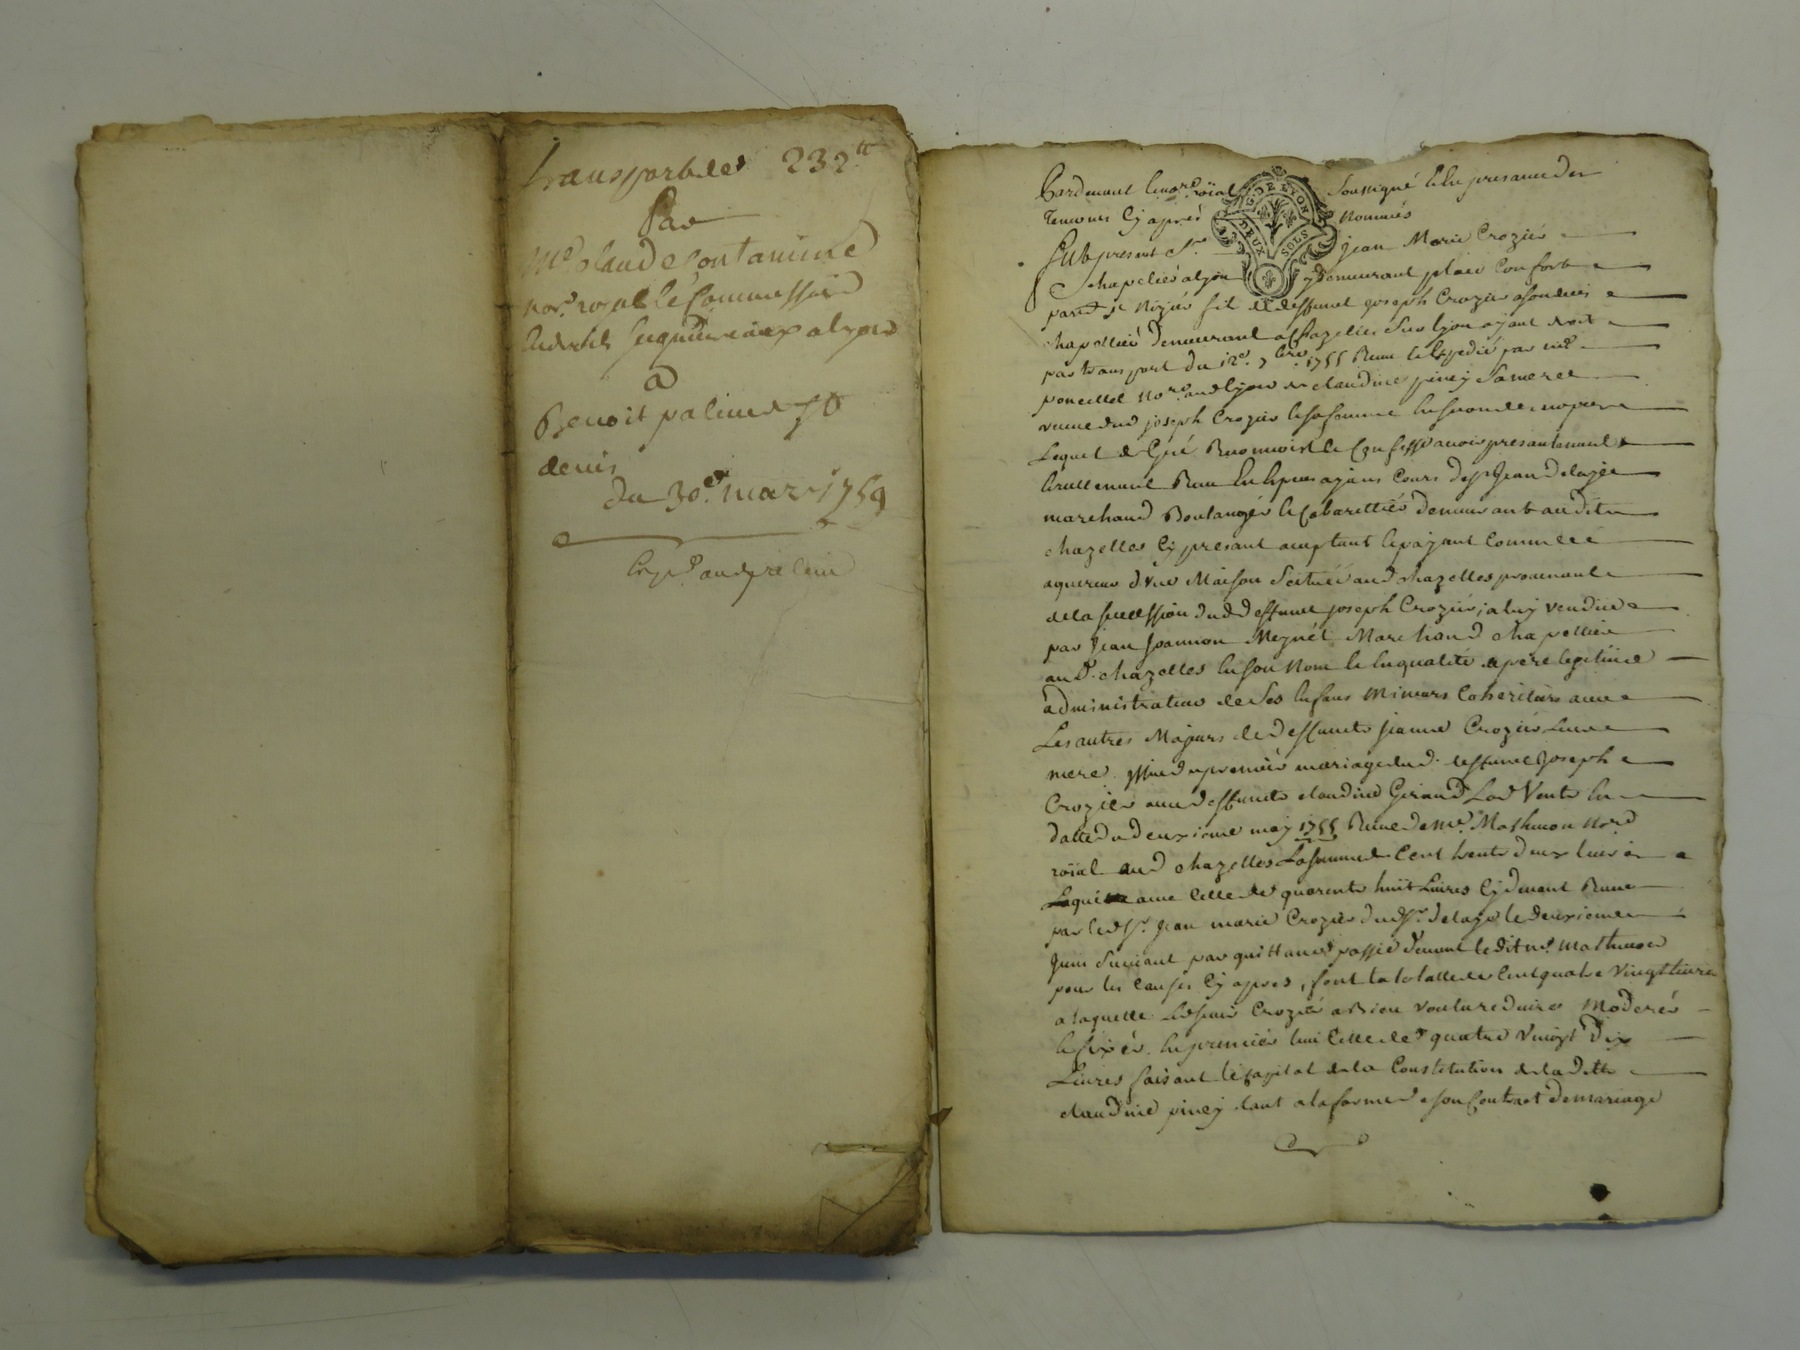 transport de 232ᵗᵗ
Par
Mᵉ Claude Contamine
Noʳᵉ royal Commissaire
a Lyon
a
Benoit palime St
denis
du 30ᵉ mars 1759
Pardevant le noʳᵉ roïal soussigné et en presance des
temoins cy après nommés
fut present Sʳ Jean Marie Crozier
chapelier a Lyon y demeurant place Confort
parˢˢᵉ St Nizier fils de deffunct Joseph Crozier
chapellier demeurant a Chazelles sur Lyon ayant droit
par transport du 12ᵉ 7bre 1755 Reçu et Expedié par mᵉ
noʳᵉ aud Lyon de claudine piney sa mere
veuve dud joseph Crozier
Lequel de gré a Reconnu et Confessé avoir presentement
et reellement Reçu En Especes ayans Cours de Sʳ Jean Delaye
marchand Boulanger et Cabarettier demeurant audit
chazelles cy present acceptant et payant Comme
aquereur d'une Maison scituée aud chazelles provenant
de la succession dud deffunct joseph Crozier, a luy vendue
par Jean Joannon Meynét Marchand chapellier
aud. chazelles en son Nom et En qualité de pere legitime
administrateur de ses Enfans Mineurs Coheritiers avec
Les autres Majeurs de deffuncte jeanne Crozier Leur
mere issue du premier mariage dud. deffunct Joseph
Crozier avec deffuncte claudine Giraud Lad Vente En
datte du deuxieme may 1755 Reçue de Mᵉ. Mathevon Noʳᵉ
roïal aud chazelles La somme de Cent trente deux livres
Laquelle avec Celle de quarente huit Livres cy devant Reçue
par led Sʳ. Jean marie Crozier dud Sʳ. delaye le deuxieme
Juin suivant par quittance passée devant ledit mᵉ Mathevon
pour les causes cy apres, font la totalle de Cent quatre Vingt livres
a laquelle led sieur Crozier a Bien voulu reduire Moderer
et fixer. En premier lieu Celle de quatre Vingt Dix
Livres faisant le Capital de la Constitution de laditte
claudine piney dans a la forme de son Contract de mariage
G. DE LYON
DEUX SOLS